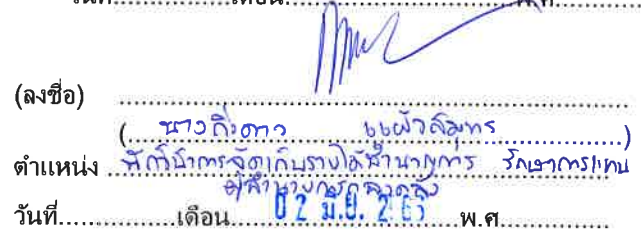 (ลงชื่อ) ........................................
( นางกิ่งดาว ........ )
ตำแหน่ง นักวิชาการจัดเก็บรายได้ชำนาญการ รักษาการแทน
ผู้อำนวยการกองคลัง
วันที่..............เดือน 02 มิ.ย. 2565 พ.ศ.